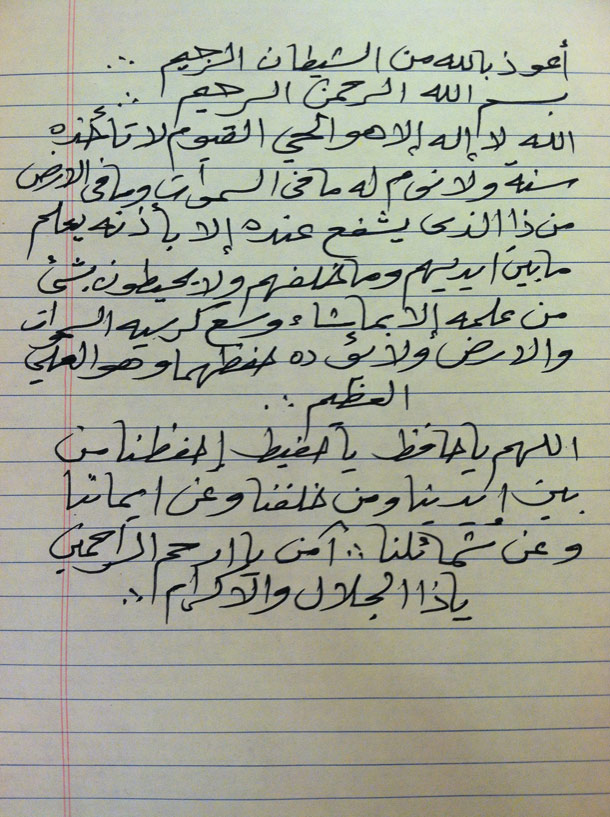 أعوذ بالله من الشيطان الرجيم ∴
بسم الله الرحمن الرحيم ∴
الله لا إله إلا هو الحي القيوم لا تأخذه
سنة ولا نوم له ما في السموات وما في الارض
من ذا الذى يشفع عنده إلا بأذنه يعلم
ما بين ايديهم وما خلفهم ولا يحيطون بشئ
من علمه إلا بما شاء وسع كرسيه السموات
والارض ولا يؤده حفظهما وهو العلي
العظيم ∴
اللهم يا حافظ يا حفيظ إحفظنا من
بين ايدينا ومن خلفنا وعن ايماننا
وعن شمائلنا ∴ آمن يا ارحم الراحمين
ياذا الجلال والاكرام ∴